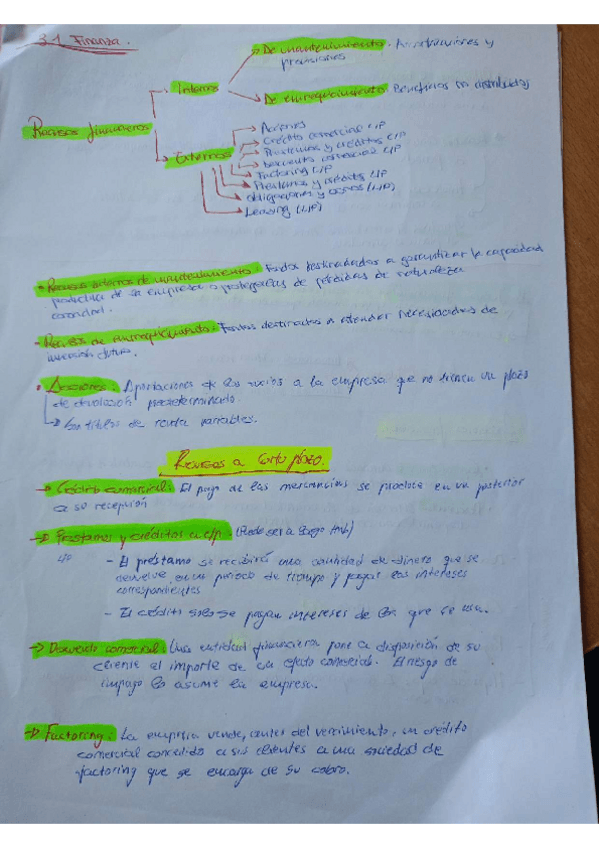 3.1 Finanza.
De mantenimiento. Amortizaciones y
provisiones
Internos
De enriquecimiento. Beneficios no distribuidos
Recursos financieros
Externos
Acciones
Crédito comercial C/P
Préstamos y créditos C/P
Descuento comercial C/P
Factoring C/P
Préstamos y créditos L/P
Obligaciones y bonos (L/P)
Leasing (L/P)
Recursos internos de mantenimiento: Fondos destinados a garantizar la capacidad
productiva de la empresa o protegerlas de pérdidas de naturaleza
Recursos de enriquecimiento: Fondos destinados a atender necesidades de
inversión futura.
Acciones. Aportaciones de los socios a la empresa que no tienen un plazo
de devolución predeterminado.
Son títulos de renta variables.
Recursos a Corto plazo.
→ Crédito comercial: El pago de las mercancías se produce en un posterior
a su recepción
→ Préstamos y créditos a c/p. (Puede ser a largo tmb)
- El préstamo se recibirá una cantidad de dinero que se
devuelve en un periodo de tiempo y pagar los intereses
correspondientes
- El crédito solo se pagan intereses de lo que se usa.
→ Descuento comercial: Una entidad financiera pone a disposición de su
cliente el importe de un efecto comercial. El riesgo de
impago lo asume la empresa.
→ Factoring: La empresa vende, antes del vencimiento, un crédito
comercial concedido a sus clientes a una sociedad de
factoring que se encarga de su cobro.